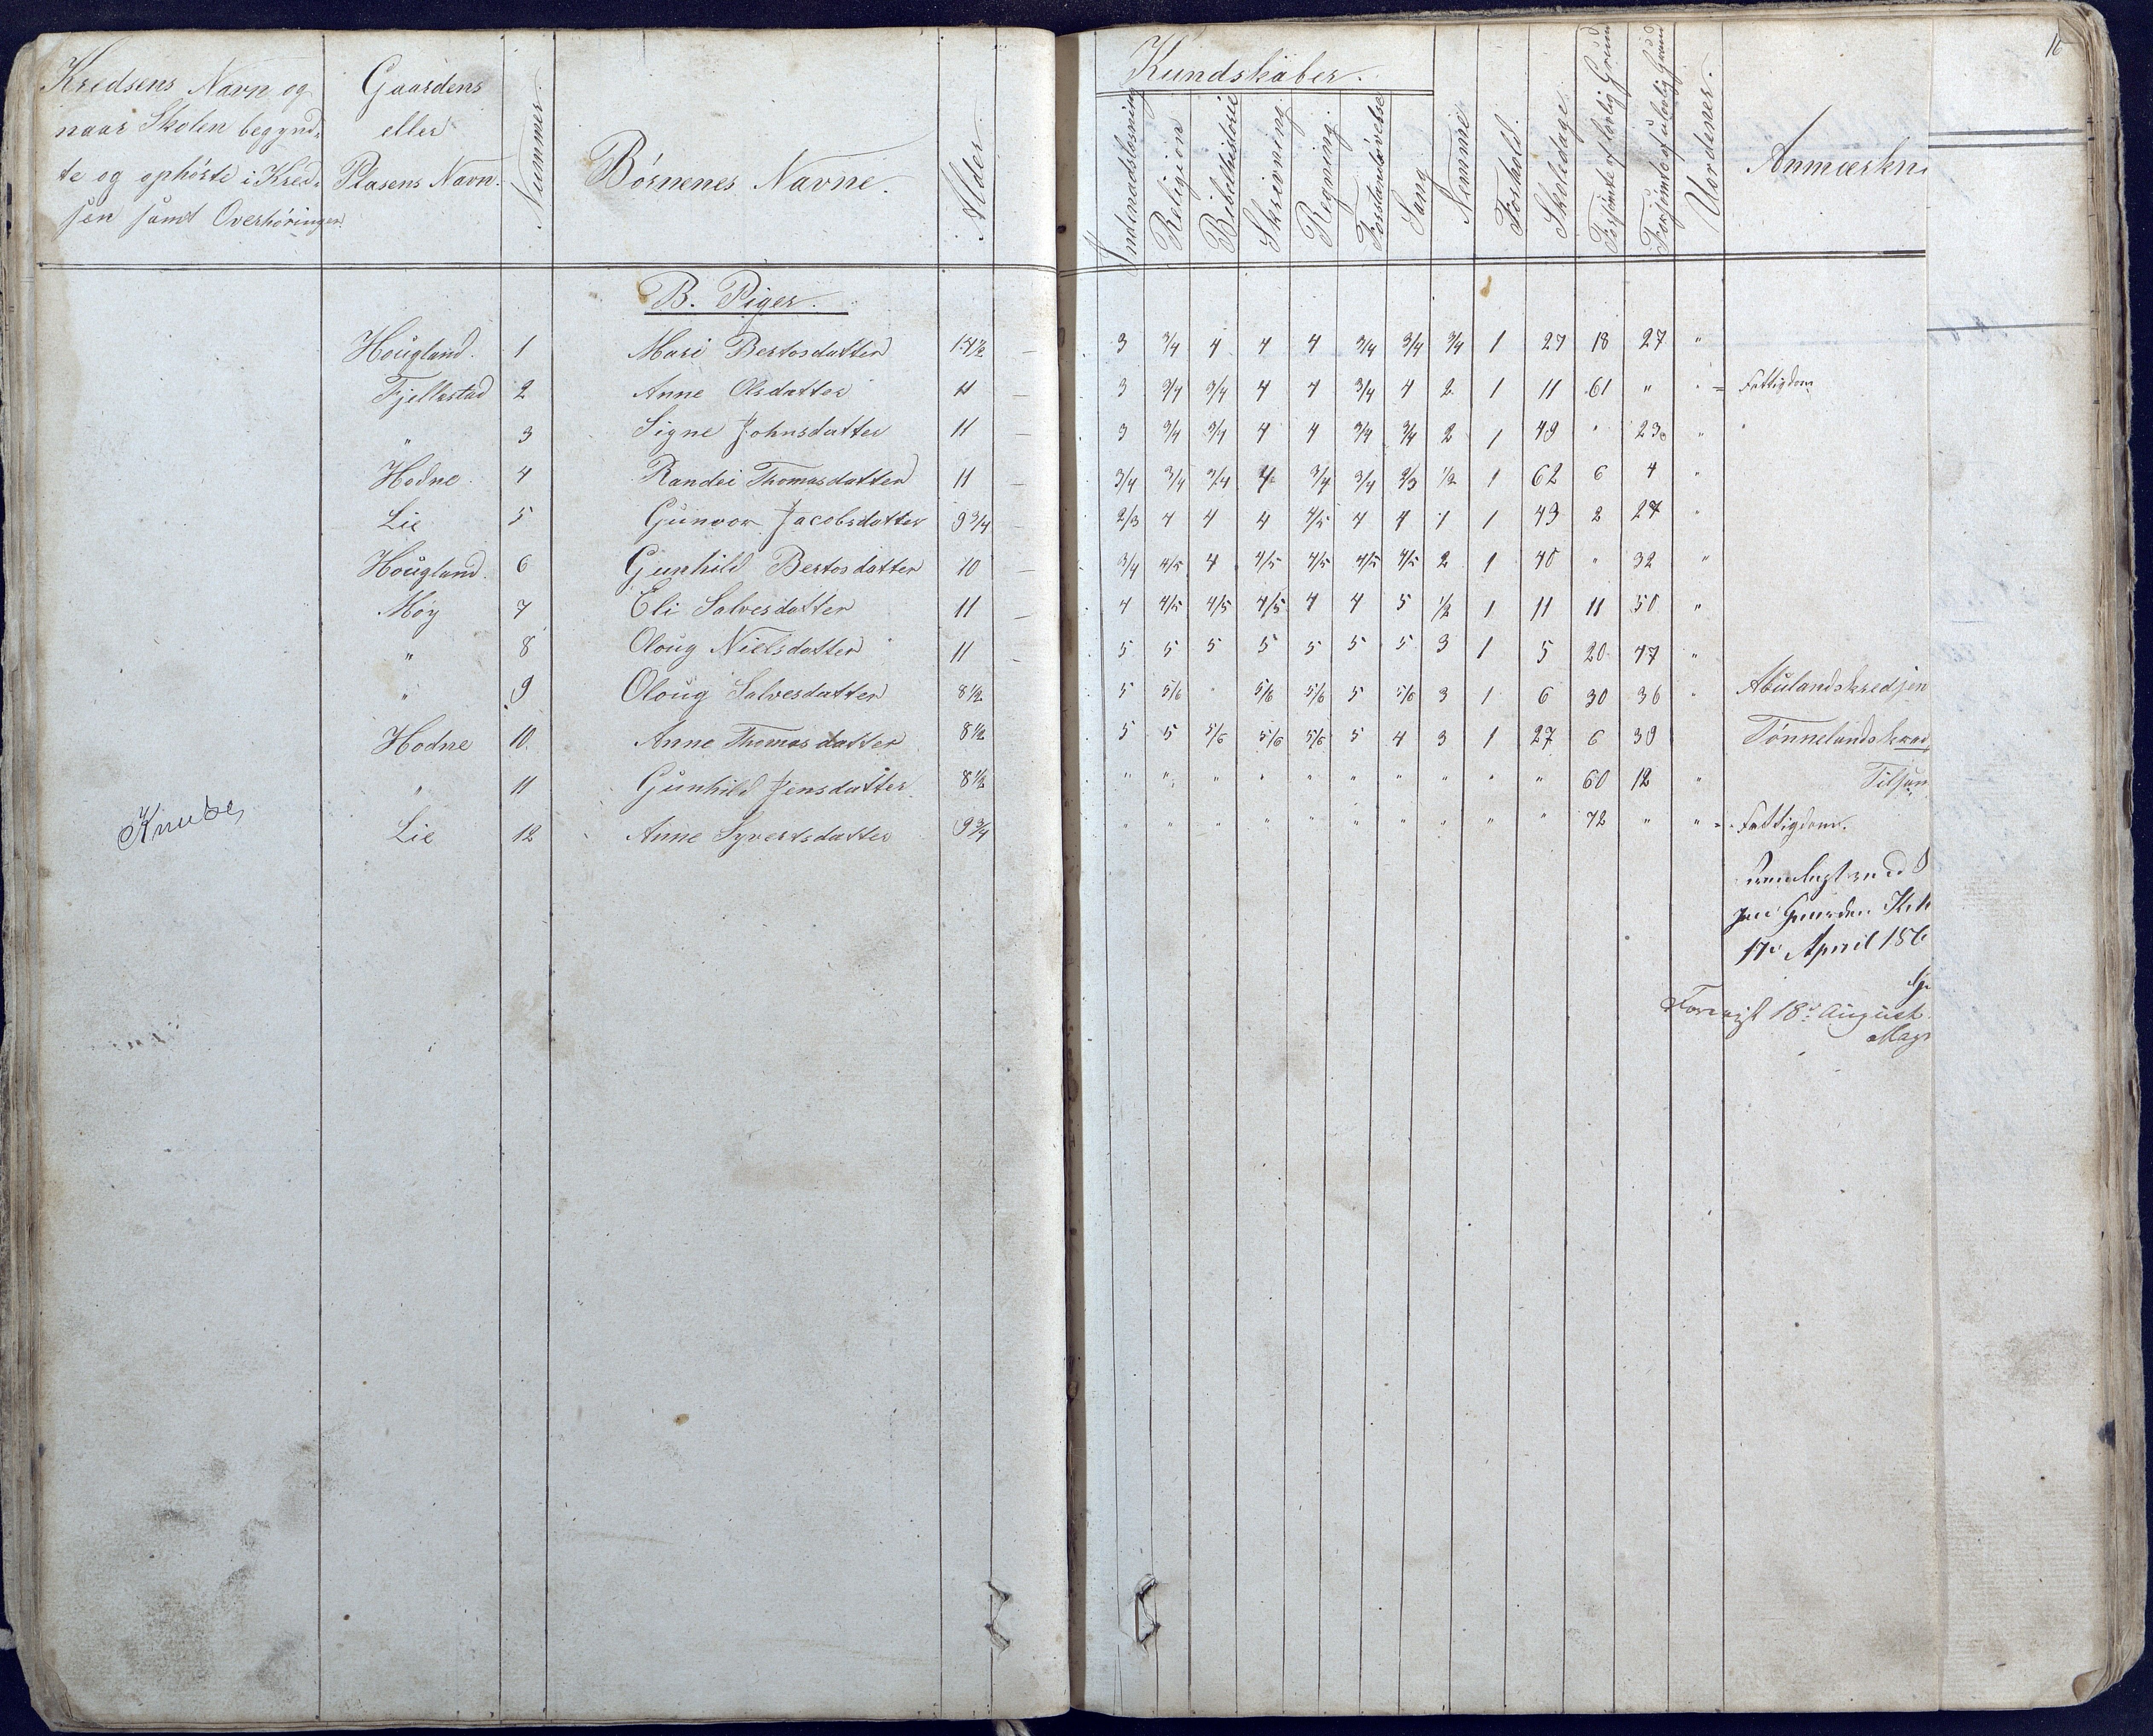 16
Kredsens Navn og
naar Skolen begynd-
te og ophörte i Kred-
sen samt Overhöringen.
Gaardens
eller
Plasens Navn.
Nummer.
Börnenes Navne.
Alder.
Kundskaber.
Indenadslæsning
Religion
Bibelhistorie
Skrivning.
Regning.
Forstandsövelse
Sang
Nemme
Forhold.
Skoledage.
Forsömte af lovlig Grund
Forsömte af ulovlig Grund
Uordener.
Anmærkn
B. Piger.
Höugland. 1 Mari Bertosdatter 3 3/4 4 4 4 3/4 3/4 3/4 1 27 18 27 "
Fjellestad 2 Anne Olsdatter 11 — 3 3/4 3/4 4 4 3/4 4 2 1 11 61 " " = Fattigdom
" 3 Signe Johnsdatter 11 — 3 3/4 3/4 4 4 3/4 3/4 2 1 49 " 23 "
Hodne. 4 Randei Thomasdatter 11 — 3/4 3/4 3/4 4 3/4 3/4 2/3 1/2 1 62 6 4 "
Lie 5 Gunvor Jacobsdatter 9 3/4 — 2/3 4 4 4 4/5 4 4 1 1 43 2 27 "
Höugland. 6 Gunhild Bertosdatter 10 — 3/4 4/5 4 4/5 4/5 4/5 4/5 2 1 40 " 32 "
Möy 7 Eli Salvesdatter 11 — 4 4/5 4/5 4/5 4 4 5 1/2 1 11 11 50 "
" 8 Oloug Nielsdatter 11 - 5 5 5 5 5 5 5 3 1 5 20 47 "
" 9 Oloug Salvesdatter 8 1/2 5 5/6 " 5/6 5/6 5 5/6 3 1 6 30 36 " Abulandskredsen
Hodne 10. Anne Thomasdatter 8 1/2 5 5 5/6 5/6 5/6 5 4 3 1 27 6 39 Tönnelandskred
" 11 Gunhild Jensdatter 8 1/2 " " " " " " " " " " 60 12 "
Lie 12 Anne Syvertsdatter 9 3/4 " " " " " " " " " " 72 " " = Fattigdom.
Gaarden
17de April 186
18de August